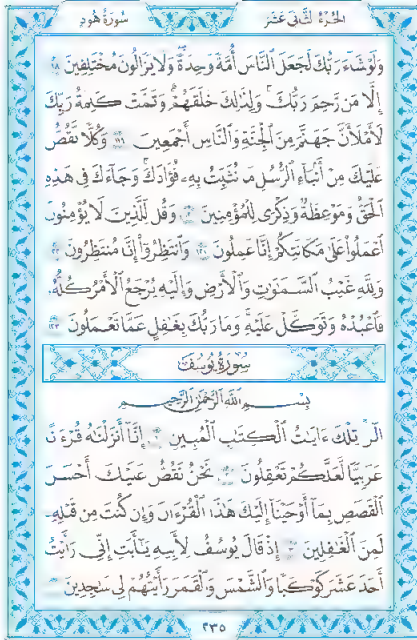 سُورَةُ هُودٍ الجُزءُ الثَّانِى عَشَرَ
وَلَوْ شَآءَ رَبُّكَ لَجَعَلَ ٱلنَّاسَ أُمَّةً وَٰحِدَةً وَلَا يَزَالُونَ مُخْتَلِفِينَ ١١٨
إِلَّا مَن رَّحِمَ رَبُّكَ وَلِذَٰلِكَ خَلَقَهُمْ وَتَمَّتْ كَلِمَةُ رَبِّكَ
لَأَمْلَأَنَّ جَهَنَّمَ مِنَ ٱلْجِنَّةِ وَٱلنَّاسِ أَجْمَعِينَ ١١٩ وَكُلًّا نَّقُصُّ
عَلَيْكَ مِنْ أَنۢبَآءِ ٱلرُّسُلِ مَا نُثَبِّتُ بِهِۦ فُؤَادَكَ وَجَآءَكَ فِى هَٰذِهِ
ٱلْحَقُّ وَمَوْعِظَةٌ وَذِكْرَىٰ لِلْمُؤْمِنِينَ ١٢٠ وَقُل لِّلَّذِينَ لَا يُؤْمِنُونَ
ٱعْمَلُوا۟ عَلَىٰ مَكَانَتِكُمْ إِنَّا عَٰمِلُونَ ١٢١ وَٱنتَظِرُوٓا۟ إِنَّا مُنتَظِرُونَ ١٢٢
وَلِلَّهِ غَيْبُ ٱلسَّمَٰوَٰتِ وَٱلْأَرْضِ وَإِلَيْهِ يُرْجَعُ ٱلْأَمْرُ كُلُّهُۥ
فَٱعْبُدْهُ وَتَوَكَّلْ عَلَيْهِ وَمَا رَبُّكَ بِغَٰفِلٍ عَمَّا تَعْمَلُونَ ١٢٣
سُورَةُ يُوسُفَ
بِسْمِ ٱللَّهِ ٱلرَّحْمَٰنِ ٱلرَّحِيمِ
الٓر تِلْكَ ءَايَٰتُ ٱلْكِتَٰبِ ٱلْمُبِينِ ١ إِنَّآ أَنزَلْنَٰهُ قُرْءَٰنًا
عَرَبِيًّا لَّعَلَّكُمْ تَعْقِلُونَ ٢ نَحْنُ نَقُصُّ عَلَيْكَ أَحْسَنَ
ٱلْقَصَصِ بِمَآ أَوْحَيْنَآ إِلَيْكَ هَٰذَا ٱلْقُرْءَانَ وَإِن كُنتَ مِن قَبْلِهِۦ
لَمِنَ ٱلْغَٰفِلِينَ ٣ إِذْ قَالَ يُوسُفُ لِأَبِيهِ يَٰٓأَبَتِ إِنِّى رَأَيْتُ
أَحَدَ عَشَرَ كَوْكَبًا وَٱلشَّمْسَ وَٱلْقَمَرَ رَأَيْتُهُمْ لِى سَٰجِدِينَ ٤
٢٣٥